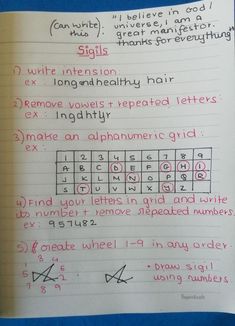 (can write this).
"I believe in God/
universe, I am a
great manifestor.
thanks for everything"
Sigils
1) write intension.
ex: long and healthy hair
2) Remove vowels + repeated letters:
ex: lngdhtyr
3) make an alphanumeric grid:
ex:
1 2 3 4 5 6 7 8 9
A B C D E F G H I
J K L M N O P Q R
S T U V W X Y Z
4) Find your letters in grid and write
its number + remove repeated numbers.
ex: 957482
5) Create wheel 1-9 in any order.
3 4
1 6
5 2
7 8 9
• Draw sigil
using numbers